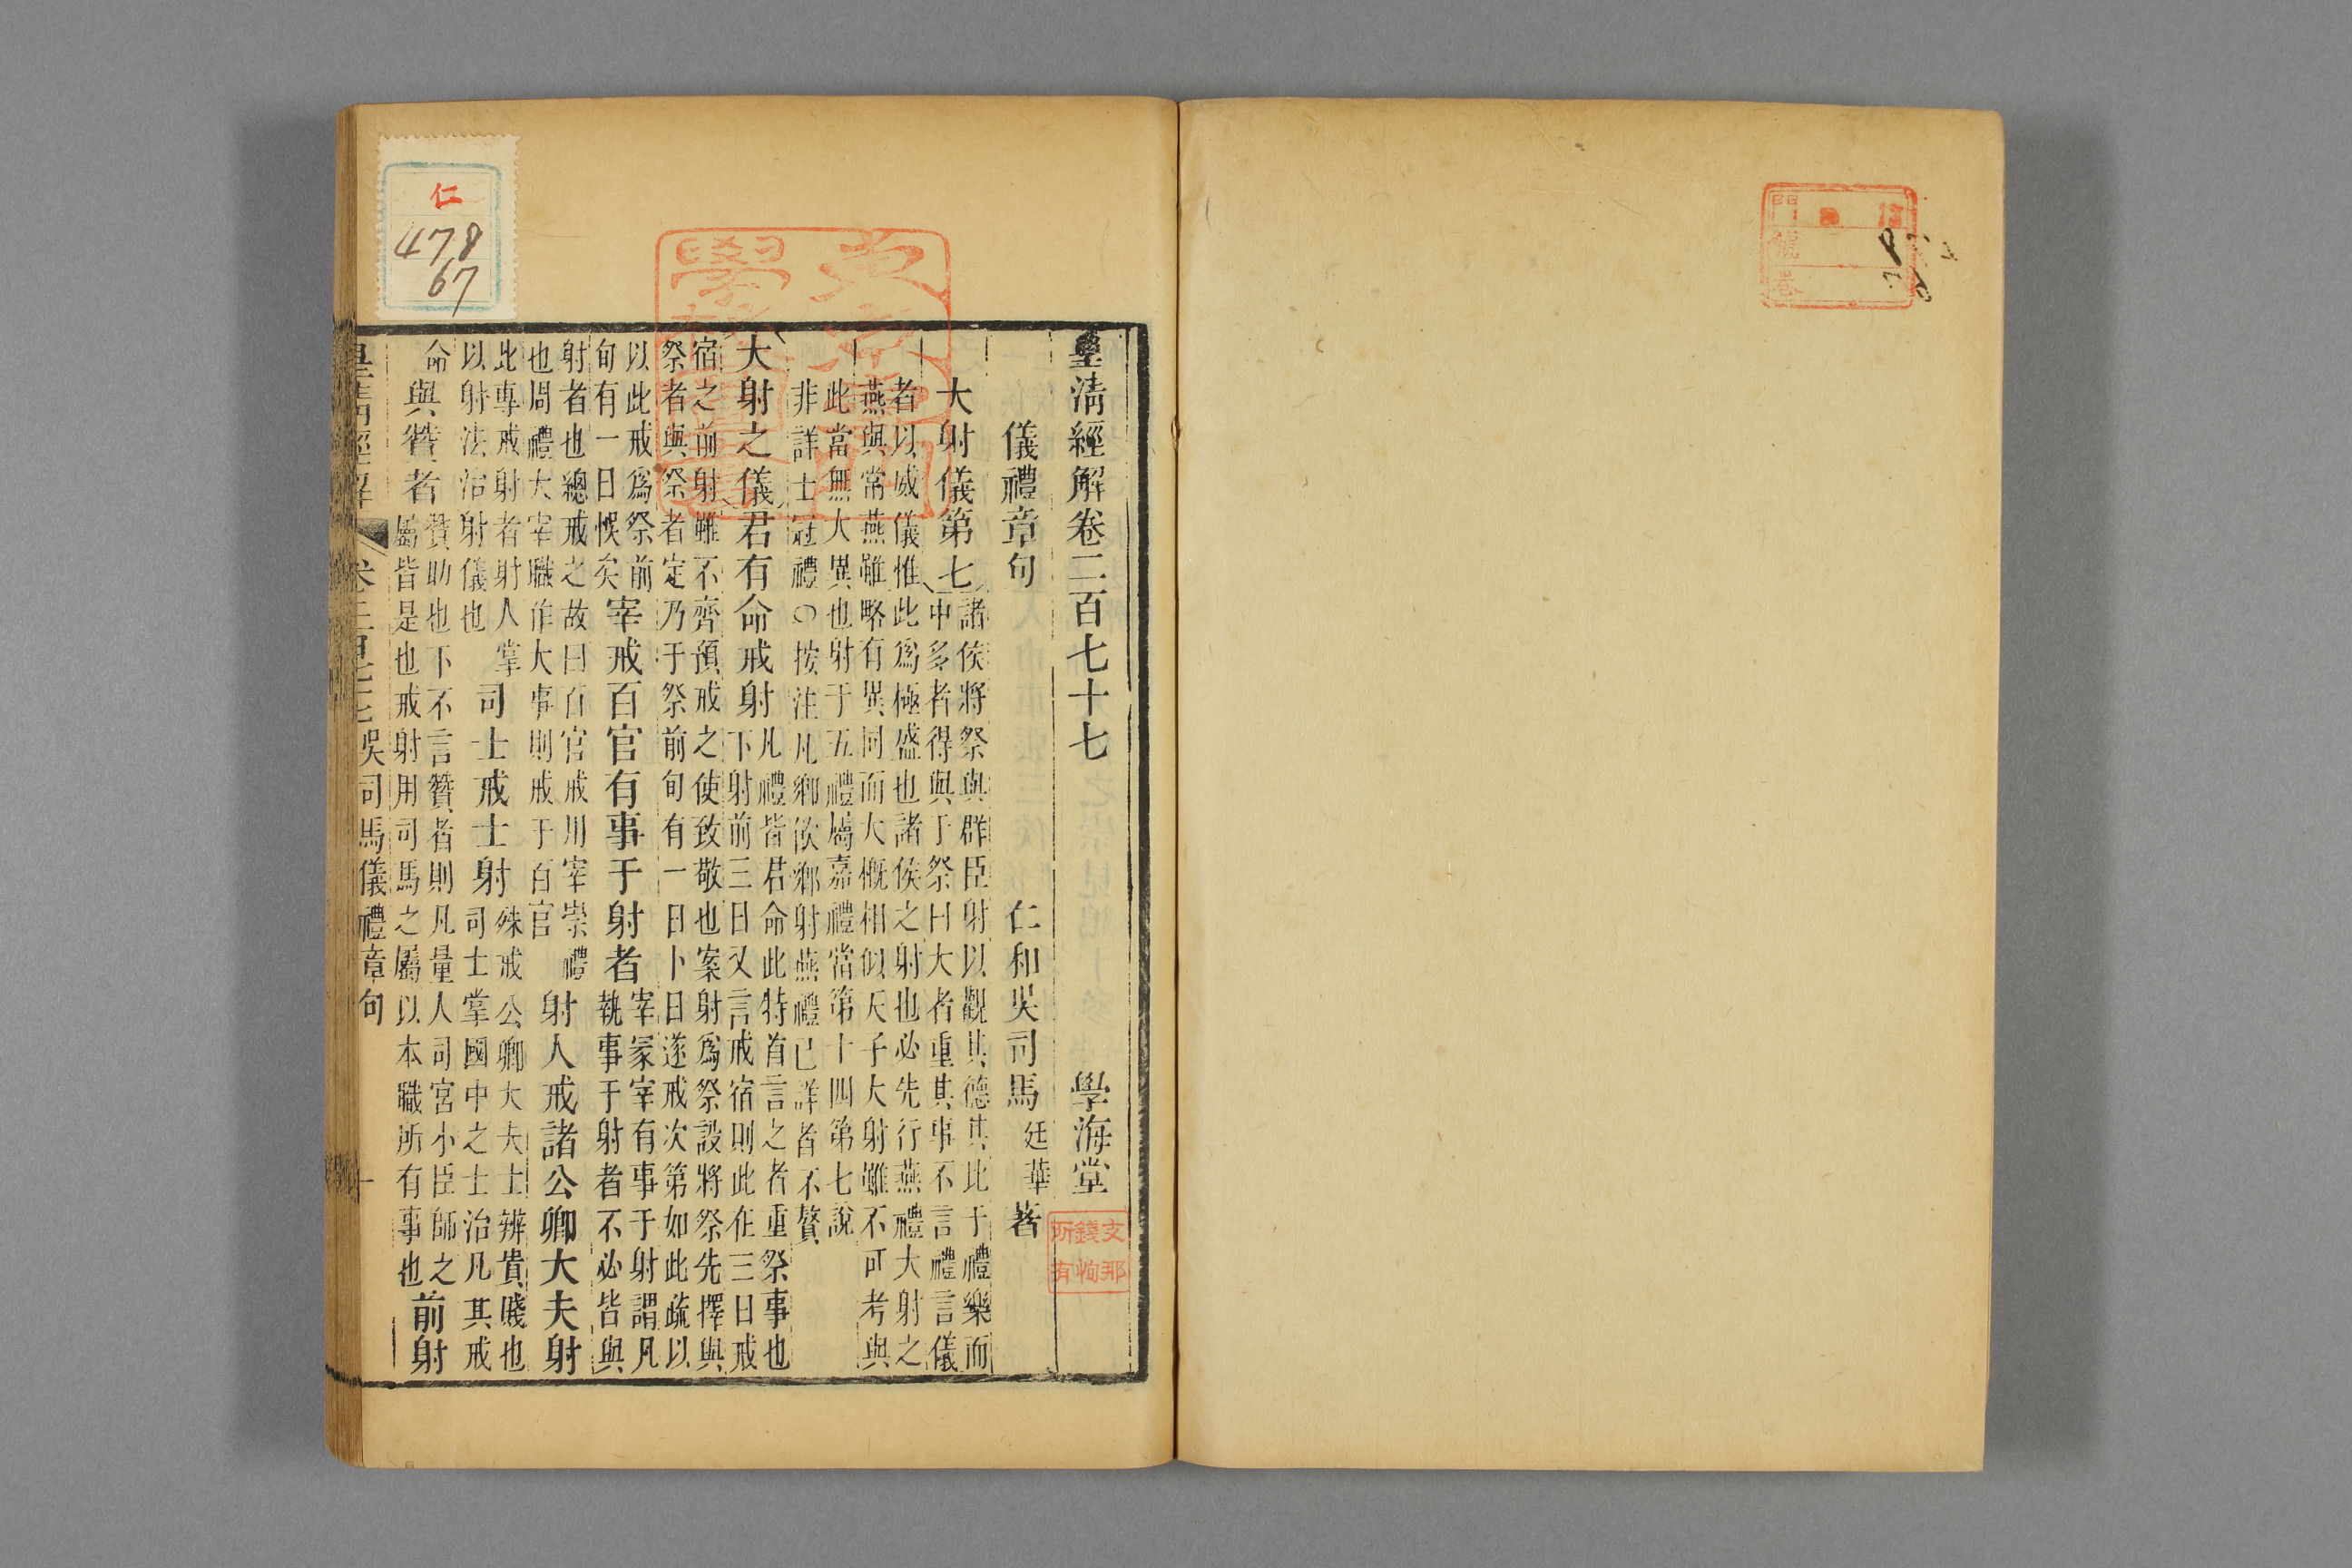 皇清經解卷二百七十七 學海堂
儀禮章句 仁和吳司馬廷華著
大射儀第七
諸侯將祭與群臣射以觀其德其比于禮樂而
中多者得與于祭曰大者重其事不言禮言儀
者以威儀惟此爲極盛也諸侯之射也必先行燕禮大射之
燕與常燕雖略有異同而大概相似天子大射雖不可考與
此當無大異也射于五禮屬嘉禮當第十四第七說
非詳士冠禮○按注凡鄉飲鄉射燕禮已詳者不贅
大射之儀君有命戒射
凡禮皆君命此特首言之者重祭事也
下射前三日又言戒宿則此在三日戒
宿之前射雖不齊預戒之使致敬也案射爲祭設將祭先擇與
祭者與祭者定乃于祭前旬有一日卜日遂戒次第如此疏以
以此戒爲祭前
旬有一日悞矣
宰戒百官有事于射者
宰冢宰有事于射謂凡
執事于射者不必皆與
射者也總戒之故曰百官戒用宰崇禮
也周禮大宰職作大事則戒于百官
射人戒諸公卿大夫射
此專戒射者射人掌
以射法治射儀也
司士戒士射
殊戒公卿大夫士辨貴賤也
司士掌國中之士治凡其戒
命
與贊者
贊助也下不言贊者則凡量人司宮小臣師之
屬皆是也戒射用司馬之屬以本職所有事也
前射
皇清經解 卷二百七十七 吳司馬儀禮章句 一
仁
478
67
支那
錢恂
所有
門
號
卷